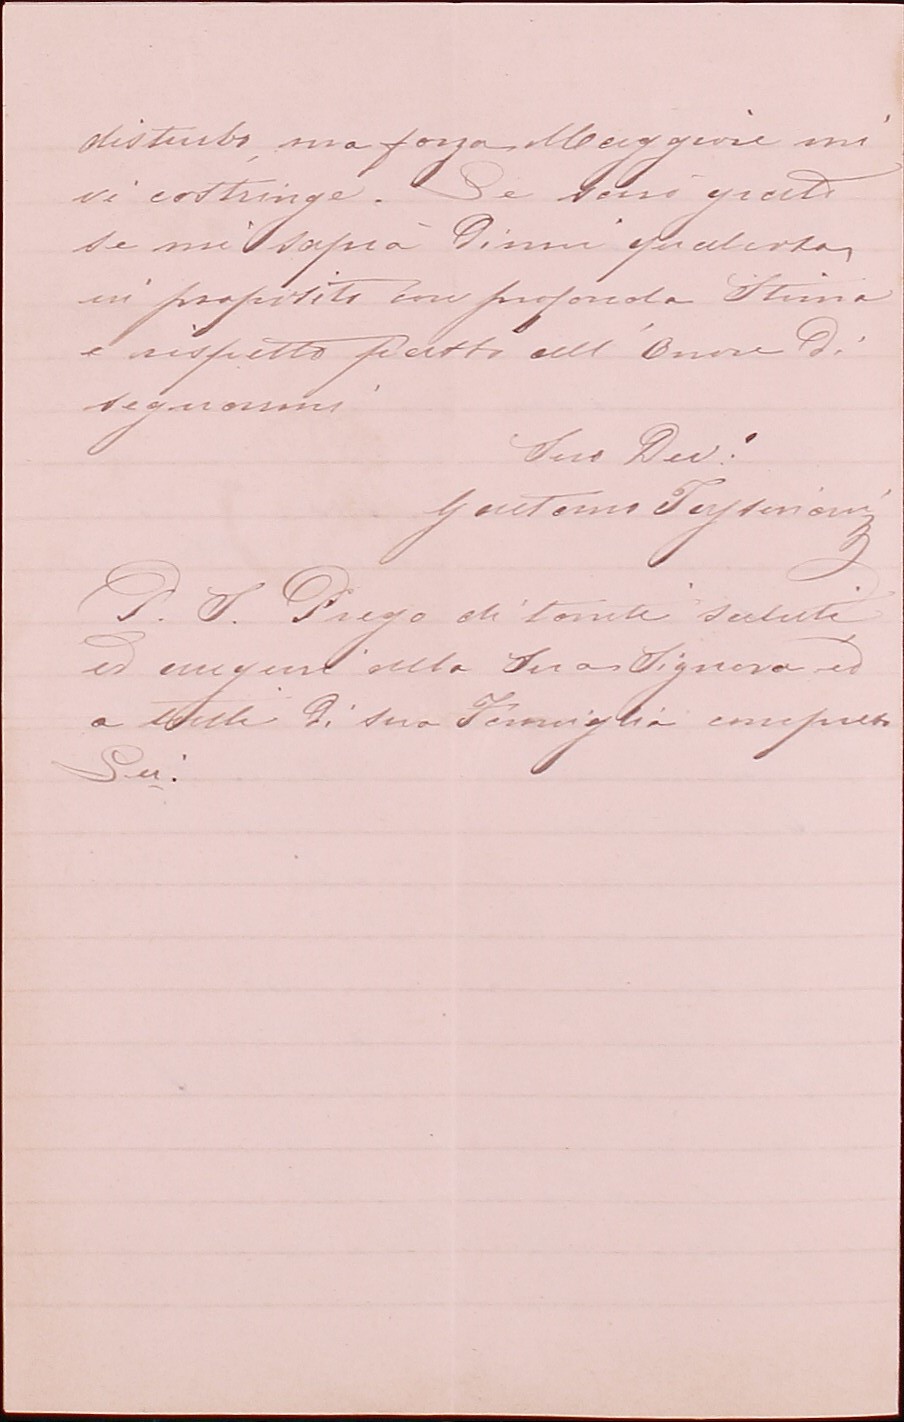 disturbo, ma forza Maggiore mi
vi costringe. Le sarò grato
se mi saprà dirmi qualcosa
in proposito con profonda Stima
e rispetto passo all'Onore di
segnarmi
Suo Dev:
Gaetano
P. S. Prego di tanti saluti
ed auguri alla Sua Signora ed
a tutti di sua Famiglia compreso
Lei.